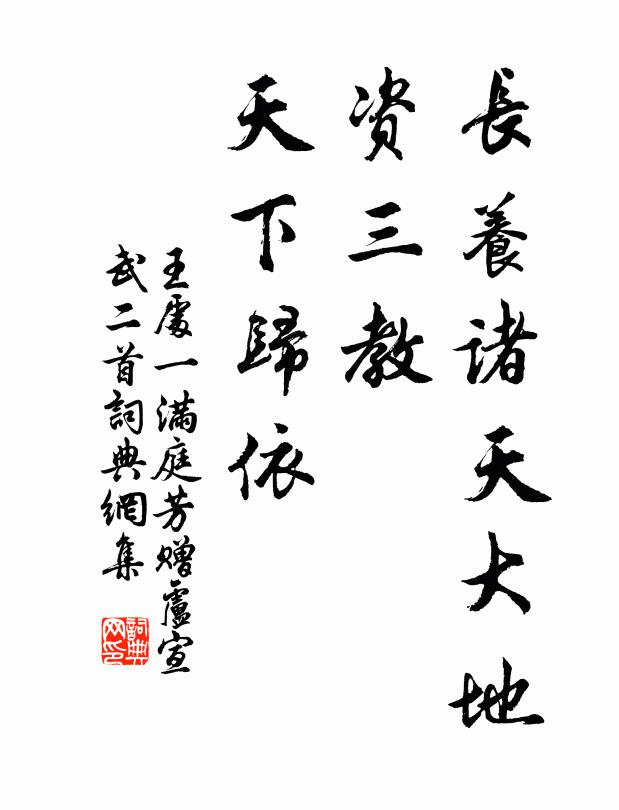 長養諸天大地
资三教
天下歸依
王處一满庭芳赠盧宣
武二首詞典網集
詞典
网印